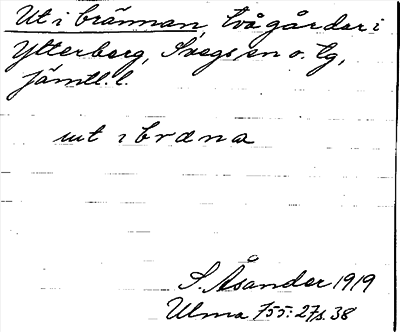 Ut i brännan, två gårdar i
Ytterberg, Svegs sn o. tg,
Jämtl. l.
ut i bræna
S. Åsander 1919
Ulma 755: 27 s. 38